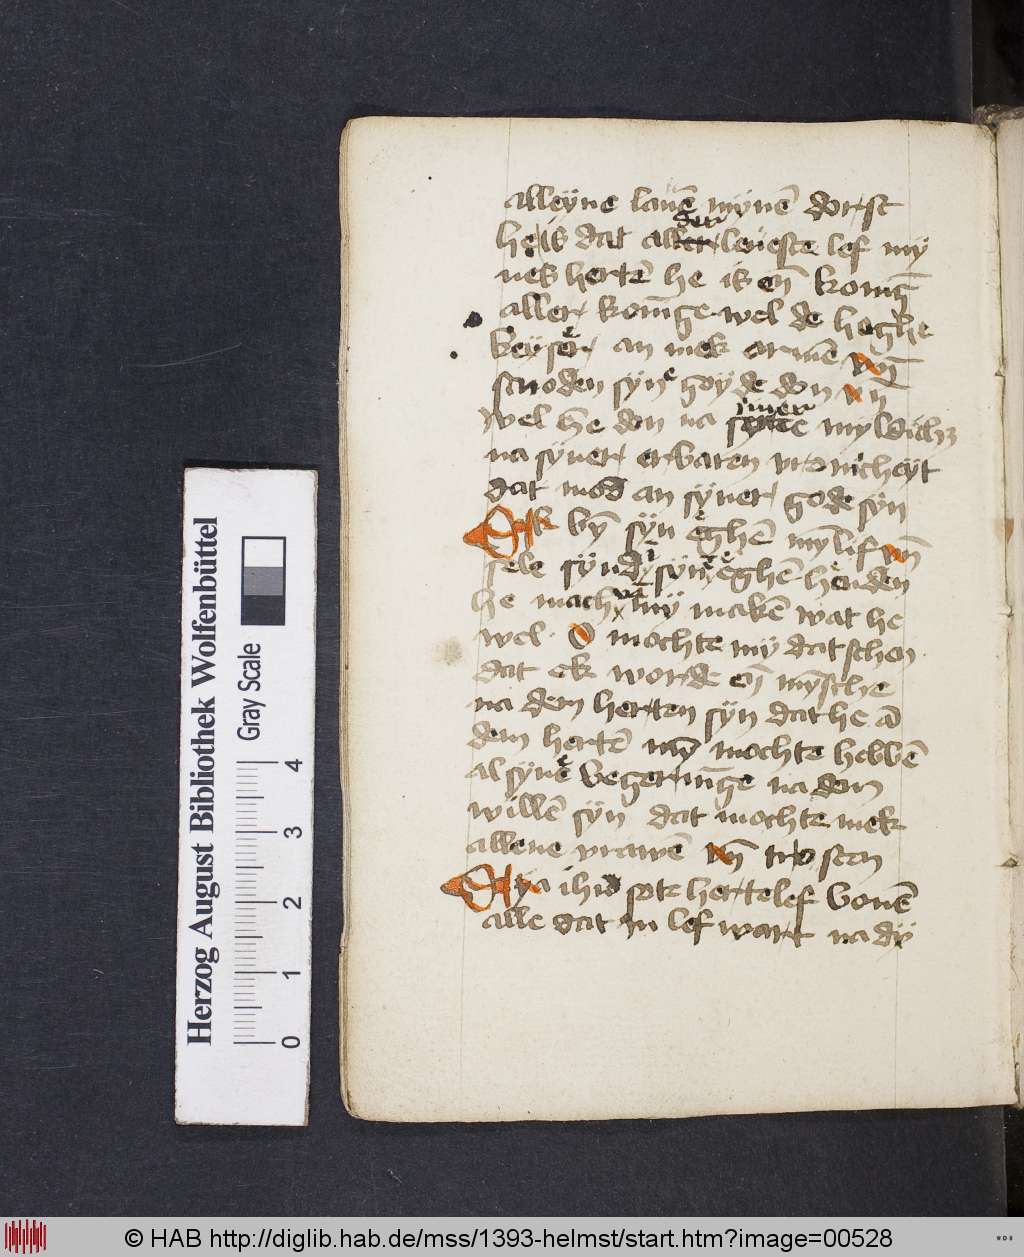 alleyne lauē mynē dorst
he is dat aller leueste lef my
nes hertē he is eȳ konīg
aller konīge wel de hoghe
keyser an mek armē vn̄
snoden syne goyde don vn̄
wel he don na syner myldich
na syner erbaren vromcheyt
dat mod an syner gode syn
Ek bȳ syn eghē mȳ lif vn̄
sele synd syner eghē henden
he mach ut my makē wat he
wel. O mochte my dat schen
dat ek worde eȳ mȳsche
na dem herten syn dat he ā
dem hertē mȳ mochte hebbē
al syne begerīnge na dem
willē syn dat mochte mek
allene vrawē vn̄ trosten
Eya ihū sote hertelef bouē
alle dat in lef wart na dy
Herzog August Bibliothek Wolfenbüttel
Gray Scale
0 1 2 3 4
© HAB http://diglib.hab.de/mss/1393-helmst/start.htm?image=00528